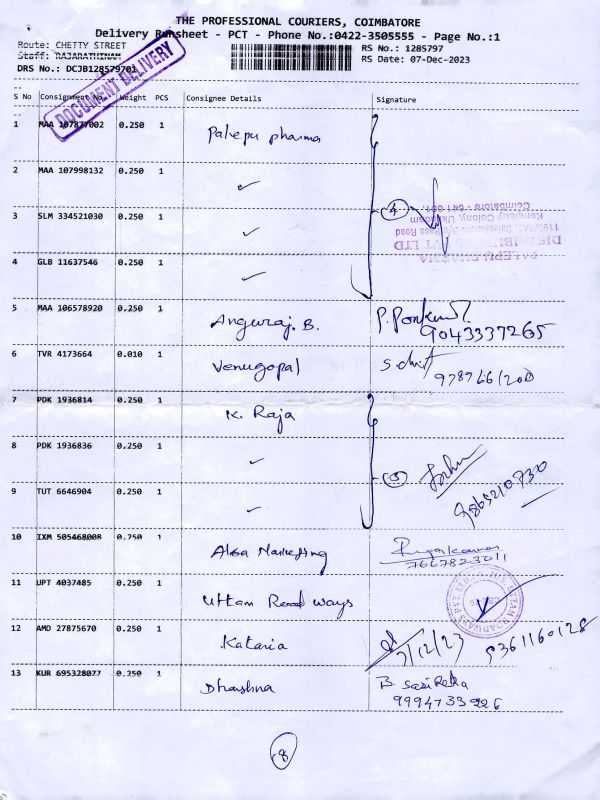 THE PROFESSIONAL COURIERS, COIMBATORE
Delivery Runsheet - PCT - Phone No.:0422-3505555 - Page No.:1
Route: CHETTY STREET
RS No.: 1285797
Staff: RAJARATHINAM
RS Date: 07-Dec-2023
DRS No.: DCJB128579701
DOCUMENT DELIVERY
S No Consignment No. Weight PCS Consignee Details Signature
1 MAA 107877002 0.250 1 Palepu pharma
2 MAA 107998132 0.250 1 ✓
3 SLM 334521030 0.250 1 ✓
4
PALEPU PHARMA
DISTRIBUTORS PVT LTD
Coimbatore - 641 001.
4 GLB 11637546 0.250 1 ✓
5 MAA 106578920 0.250 1 Anguraj. B.
9043337265
6 TVR 4173664 0.010 1 Venugopal
7 PDK 1936814 0.250 1 K. Raja
8 PDK 1936836 0.250 1 ✓
3
9865210730
9 TUT 6646904 0.250 1 ✓
10 IXM 505468008 0.250 1 Alsa Marketing
7667823011
11 UPT 4037485 0.250 1 Uttam Road ways
12 AMD 27875670 0.250 1 Kataria
7/12/23 9361160128
13 KUR 695328077 0.250 1 Dharshna B. SasiRekha
9994733226
8